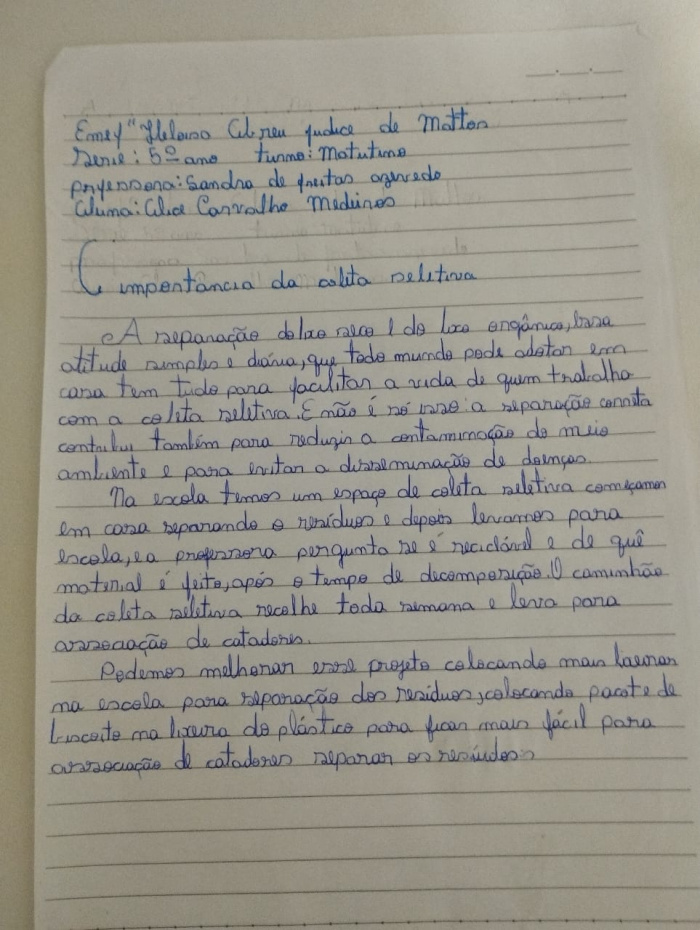 Emef "Heloisa Abreu Judice de Mattos
Serie: 5º ano turno: Matutino
professora: Sandra de freitas azevedo
Aluna: Alice Carvalho Medeiros
A importância da coleta seletiva
A separação do lixo seco e do lixo orgânico, essa
atitude simples e diária, que todo mundo pode adotar em
casa tem tudo para facilitar a vida de quem trabalha
com a coleta seletiva. E não é só isso: a separação correta
contribui também para reduzir a contaminação do meio
ambiente e para evitar a disseminação de doenças.
Na escola temos um espaço de coleta seletiva começamos
em casa separando o resíduos e depois levamos para
escola, e a professora pergunta se é reciclável e de quê
material é feito, após o tempo de decomposição. O caminhão
da coleta seletiva recolhe toda semana e leva para
associação de catadores.
Podemos melhorar esse projeto colocando mais lixeiras
na escola para separação dos resíduos, colocando pacote de
biscoito na lixeira do plástico para ficar mais fácil para
associação de catadores separar os resíduos